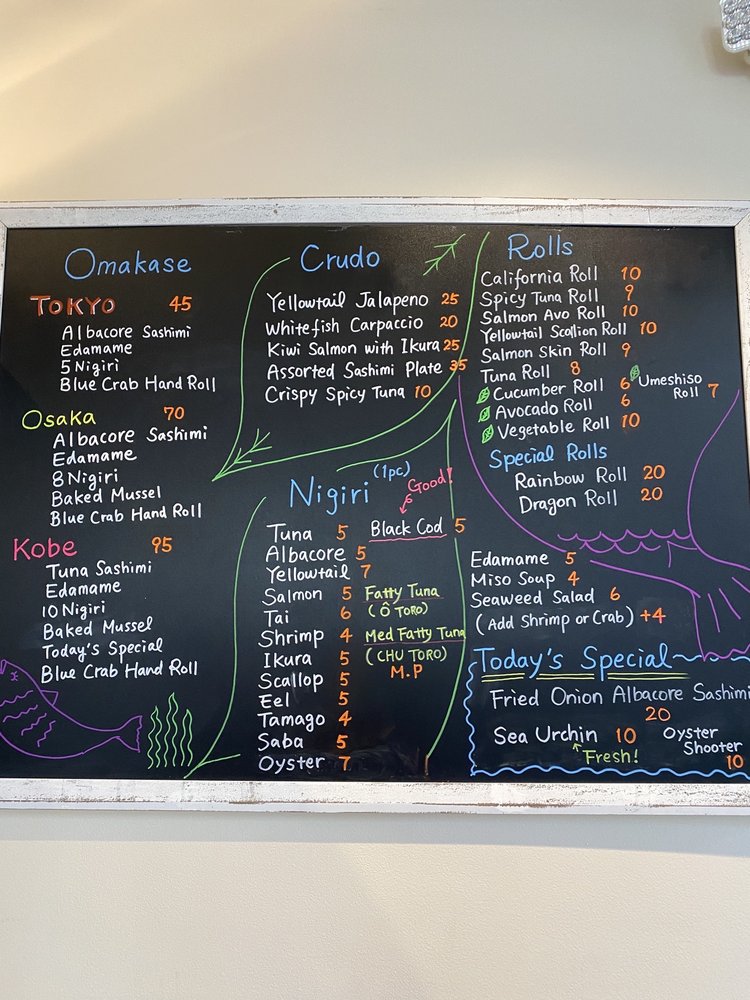 Omakase
TOKYO 45
Albacore Sashimi
Edamame
5 Nigiri
Blue Crab Hand Roll
Osaka 70
Albacore Sashimi
Edamame
8 Nigiri
Baked Mussel
Blue Crab Hand Roll
Kobe 95
Tuna Sashimi
Edamame
10 Nigiri
Baked Mussel
Today's Special
Blue Crab Hand Roll
Crudo
Yellowtail Jalapeno 25
Whitefish Carpaccio 20
Kiwi Salmon with Ikura 25
Assorted Sashimi Plate 35
Crispy Spicy Tuna 10
Nigiri (1pc)
Good!
Tuna 5
Black Cod 5
Albacore 5
Yellowtail 7
Salmon 5
Tai 6
Shrimp 4
Ikura 5
Scallop 5
Eel 5
Tamago 4
Saba 5
Oyster 7
Fatty Tuna
(Ō TORO)
Med Fatty Tuna
(CHU TORO)
M.P
Rolls
California Roll 10
Spicy Tuna Roll 9
Salmon Avo Roll 10
Yellowtail Scallion Roll 10
Salmon Skin Roll 9
Tuna Roll 8
Cucumber Roll 6
Avocado Roll 6
Vegetable Roll 10
Umeshiso
Roll 7
Special Rolls
Rainbow Roll 20
Dragon Roll 20
Edamame 5
Miso Soup 4
Seaweed Salad 6
(Add Shrimp or Crab) +4
Today's Special
Fried Onion Albacore Sashimi
20
Sea Urchin 10
Fresh!
Oyster
Shooter
10